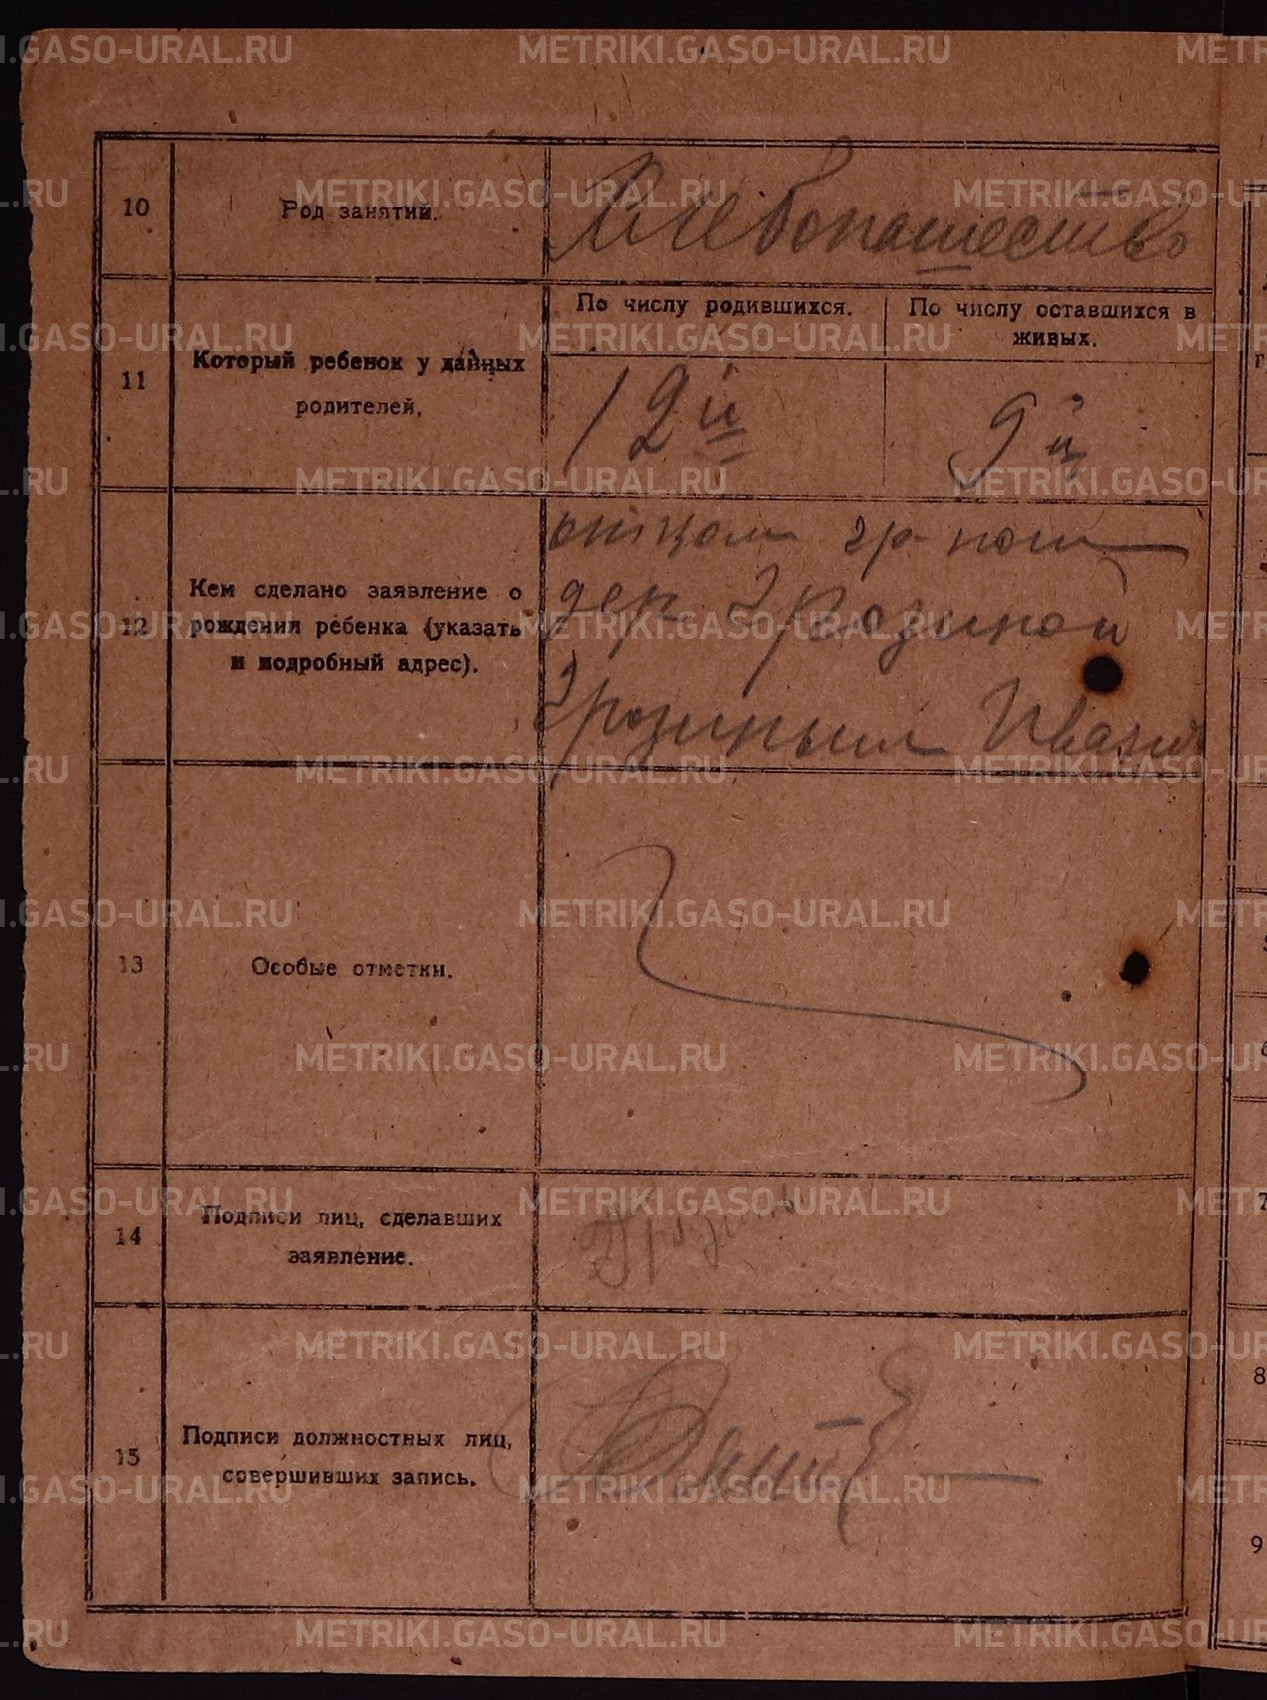 10
Род занятий.
Хлебопашество
11
Который ребенок у данных
родителей,
По числу родившихся.
12й
По числу оставшихся в
живых.
9й
12
Кем сделано заявление о
рождении ребенка (указать
и подробный адрес).
отцом гр-ном
дер Грозиной
Грозиным Иваном
13
Особые отметки.
14
Подписи лиц, сделавших
заявление.
15
Подписи должностных лиц,
совершивших запись.
7
8
9
METRIKI.GASO-URAL.RU